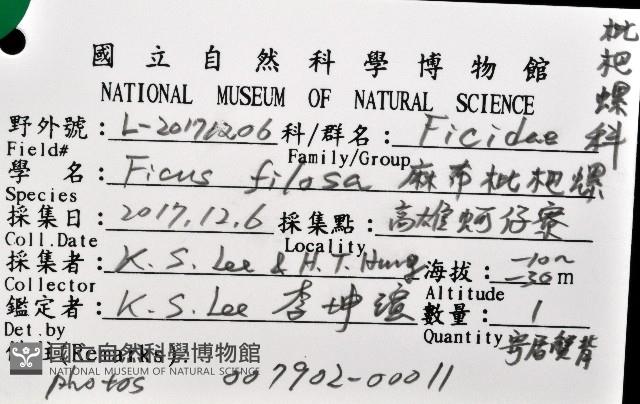 國立自然科學博物館
NATIONAL MUSEUM OF NATURAL SCIENCE
枇杷螺科
野外號：L-20171206 科/群名：Ficidae
Field# Family/Group
學名：Ficus filosa 麻布枇杷螺
Species
採集日：2017.12.6 採集點：高雄蚵仔寮
Coll.Date Locality
採集者：K. S. Lee & H. T. Hung 海拔：-10~-30m
Collector Altitude
鑑定者：K. S. Lee 李坤瑄 數量：1
Det.by Quantity 寄居蟹背
(Remarks)
國立自然科學博物館
NATIONAL MUSEUM OF NATURAL SCIENCE
photos 007902-00011